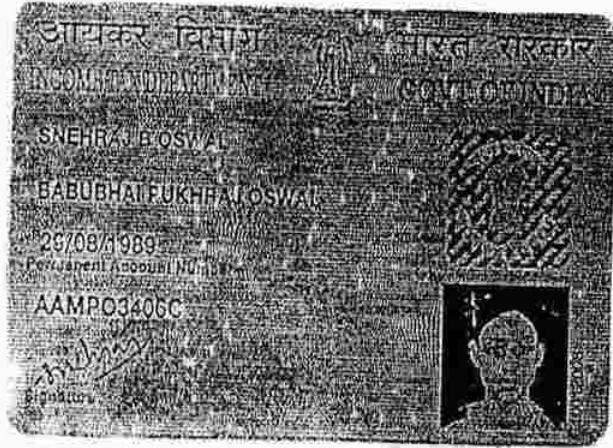 आयकर विभाग
भारत सरकार
INCOME TAX DEPARTMENT
GOVT. OF INDIA
SNEHRAJ B OSWAL
BABUBHAI PUKHRAJ OSWAL
29/08/1989
Permanent Account Number
AAMPO3406C
Signature